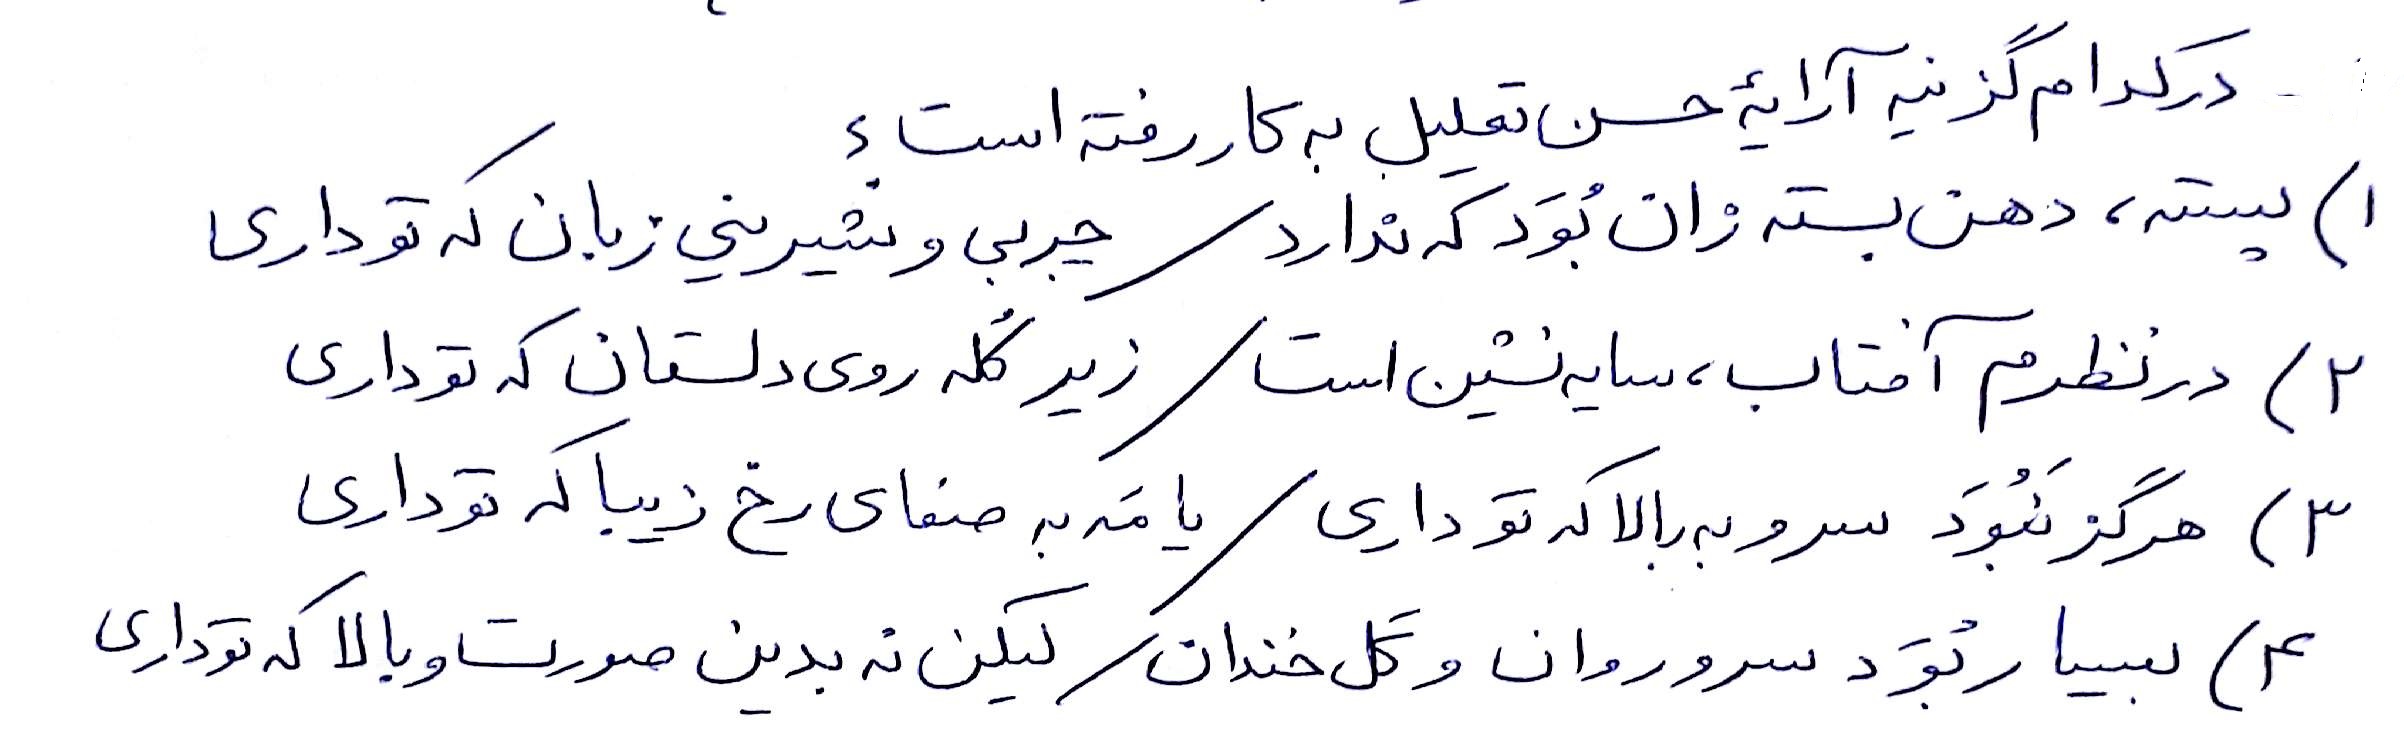 - در کدام گزینه آرایهٔ حسن تعلیل به کار رفته است؟
۱) پسته، دهن بسته زان بُوَد که ندارد / چربی و شیرینیِ زبان که تو داری
۲) در نظرم آفتاب، سایه نشین است / زیر کُله روی دلستان که تو داری
۳) هرگز نَبُوَد سرو به بالا که تو داری / یا مَه به صفای رخ زیبا که تو داری
۴) بسیار بُوَد سرو روان و گل خندان / لیکن نه بدین صورت و بالا که تو داری